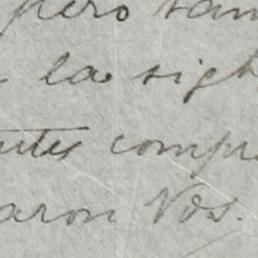 pero tam
la sigh
utes compr
aron Vds.